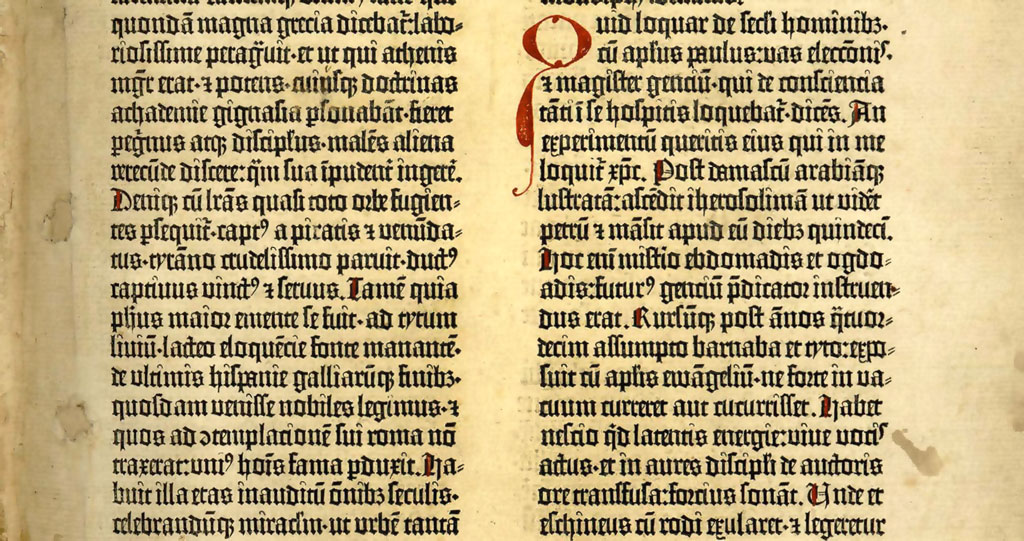 quondā magna grecia dicebat̄: labo-
riosissime peragᷣuit. et ut qui athenis
mgr̄ erat. ⁊ potens. cuiusq̨ doctrinas
achademie gignasia ꝑsonabāt. fieret
peg̓nus atq̨ discipl̓us. malēs aliena
verecūde discere: q̄m sua īpudent̓ ingerē.
Deniq̨ cū lr̄as quasi toto orbe fugien-
tes ꝑsequit̄. captꝰ a piratis ⁊ venūda-
tus. tyrāno crudelissimo paruit. ductꝰ
captiuus vinctꝰ ⁊ seruus. Tamē quia
ph̄us maior emente se fuit. ad tytum
liuiū. lacteo eloquēcie fonte manantē.
de vltimis hispanie galliarūq̨ finibꝫ.
quosdam venisse nobiles legimus. ⁊
quos ad ꝯtemplacionē sui roma nō
traxerat: vniꝰ hoīs fama ꝑduxit. Ha-
buit illa etas inauditū ōnibꝫ seculis.
celebrandūq̨ miracl̓m. ut urbē tantā
Quid loquar de secl̓i hominibꝫ.
cū apl̓us paulus: vas electōnis.
⁊ magister genciū. qui de consciencia
tāti ī se hospitis loquebat̄. dicēs. An
experimentū queritis eius qui in me
loquit̄ xp̄c. Post damascū arabiāq̨
lustratā: ascēdit iherosolimā ut vidēt
petrū ⁊ māsit apud eū diebꝫ quindeci.
Hoc eni mistīo ebdomadis et ogdo-
adis: futurꝰ genciū p̄dicator instruen-
dus erat. Rursūq̨ post ānos q̄tuor-
decim assumpto barnaba et tyto: expo-
suit cū apl̓is ewāgeliū. ne forte in va-
cuum curreret aut cucurrisset. Habet
nescio q̄d latentis energie: viue vocis
actus. et in aures discipl̓i de auctoris
ore transfusa: forcius sonāt. Unde et
eschineus cū rodi exularet. ⁊ legeretur